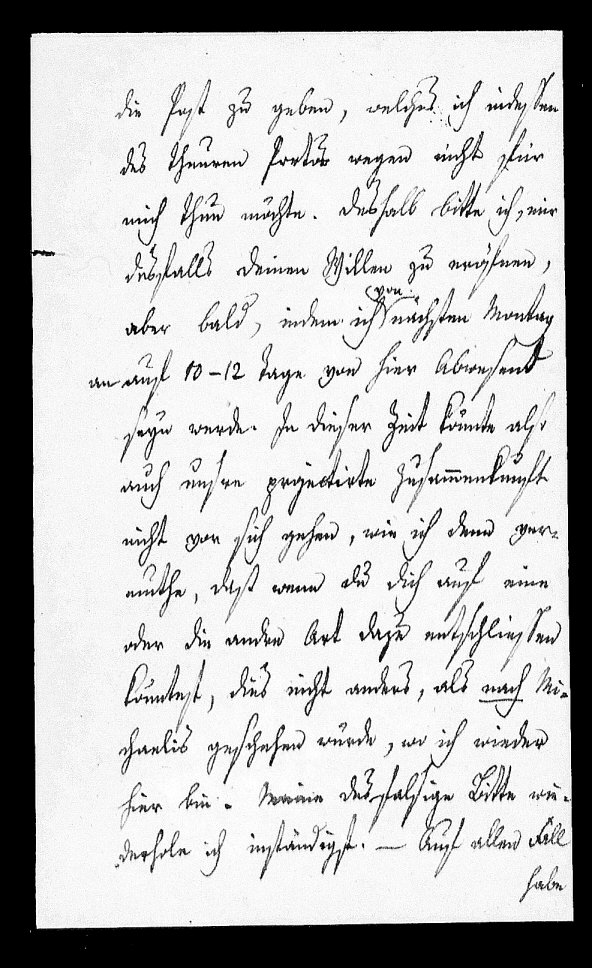 die Post zu geben, welches ich indessen
des theuren Porto's wegen nicht für
mich thun möchte. Deshalb bitte ich, mir
desfalls deinen Willen zu eröfnen,
aber bald, indem ich von nächsten Montag
an auf 10-12 Tage von hier Abwesend
seyn werde. In dieser Zeit könnte also
auch unsre projectirte Zusammenkunft
nicht vor sich gehen, wie ich denn ver-
muthe, dass wenn du dich auf eine
oder die andre Art dazu entschliessen
könntest, dies nicht anders, als nach Mi-
chaelis geschehen würde, wo ich wieder
hier bin. Meine desfalsige Bitte wie-
derhole ich inständigst. — Auf allen Fall
habe